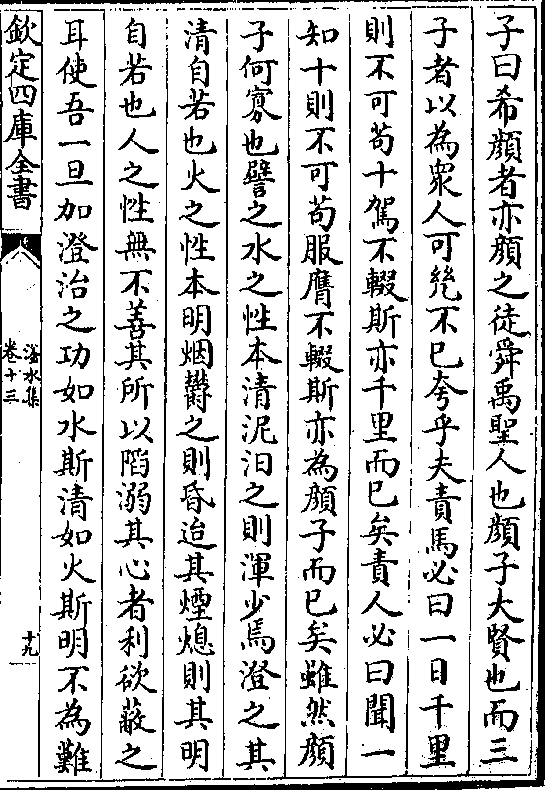 子曰希顔者亦顔之徒舜禹聖人也顔子大賢也而三
子者以為衆人可㡬不已夸乎夫責馬必曰一日千里
則不可苟十駕不輟斯亦千里而已矣責人必曰聞一
知十則不可苟服膺不輟斯亦為顔子而已矣雖然顔
子何寡也譬之水之性本清泥汩之則渾少焉澄之其
清自若也火之性本明烟欝之則昏迨其煙熄則其明
自若也人之性無不善其所以陷溺其心者利欲蔽之
耳使吾一旦加澄治之功如水斯清如火斯明不為難
欽定四庫全書
滏水集
卷十三
十九